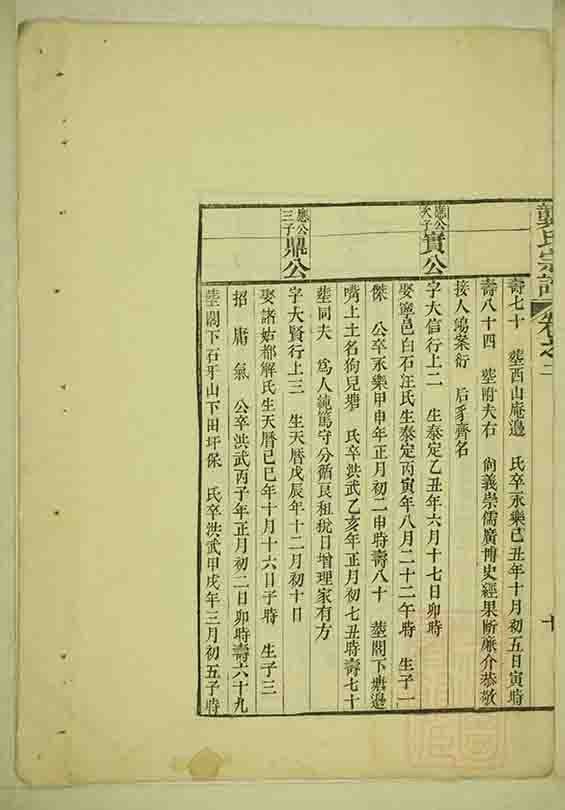 龔氏宗譜 卷之二
壽七十 塟西山庵邉 氏卒永樂己丑年十月初五日寅時
壽八十四 塟附夫右 尙義崇儒廣博史經果斷廉介恭敬
接人鴻案衍 后豸齊名
應公次子 實公
字大信行上二 生泰定乙丑年六月十七日卯時
娶寧邑白石汪氏生泰定丙寅年八月二十二午時 生子一
傑 公卒永樂甲申年正月初二申時壽八十 塟閣下塘邉
嘴上土名狗兒塘 氏卒洪武乙亥年正月初七丑時壽七十
塟同夫 爲人純篤守分循良租稅日增理家有方
應公三子 鼎公
字大賢行上三 生天曆戊辰年十二月初十日
娶諸姑都解氏生天曆己巳年十月十六日子時 生子三
招 庸 氣 公卒洪武丙子年正月初二日卯時壽六十九
塟閣下石牙山下田圩保 氏卒洪武甲戌年三月初五子時